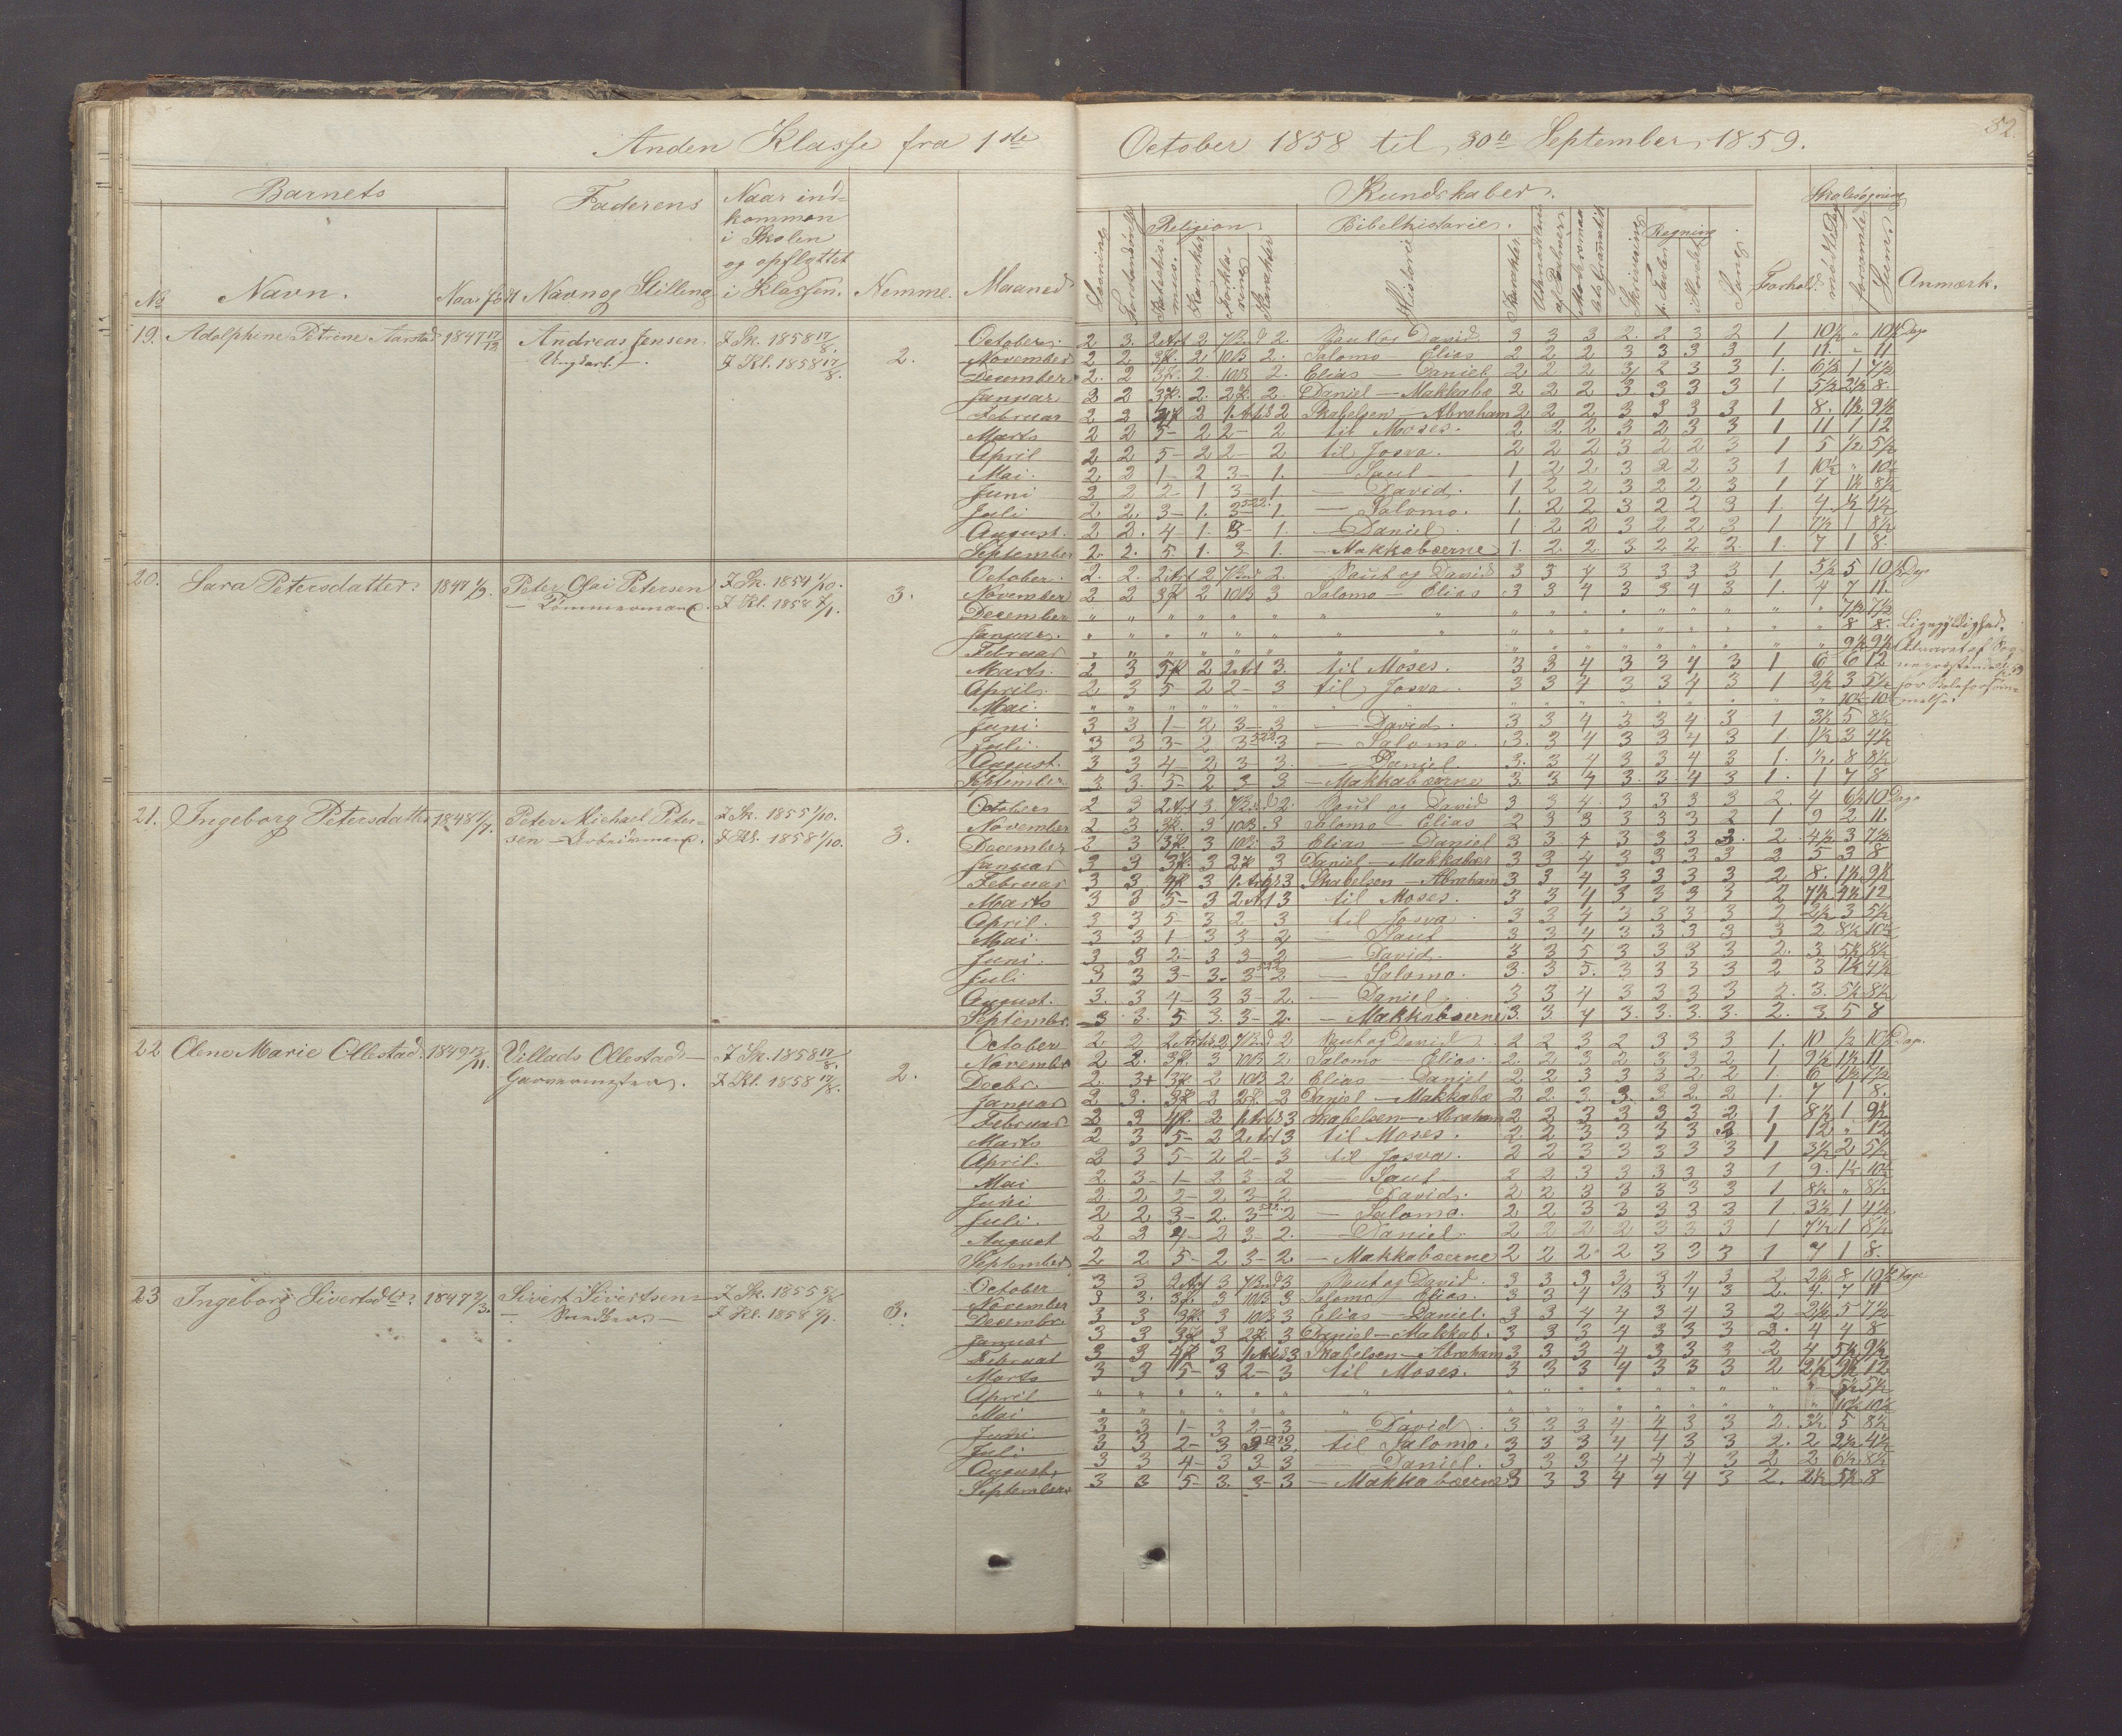 Anden Klasse fra 1ste October 1858 til 30te September 1859.
52.
Barnets Faderens Naar ind-
kommen
i Skolen
og opflyttet
i Klassen.
No Navn. Naar født Navn og Stilling Nemme. Maaned
Kundskaber. Skolesøgning
Religion Bibelhistorie. Regning
Læsning Forklaring Karakter Historie Karakter Skrivning Sang Forhold mødt Dage forsømte Sum. Anmærk.
19. Adolphine Petrine Aarstad 1847 17/12 Andreas Jensen I Sk. 1858 17/8. 2.
I Kl. 1858 17/8.
October. 2 3. 2 Art 2 7 Bud 2. Saul og David 3 3 3 2. 2 3 2 1. 10½ " 10½ Dage
November 2 2 3 2 10B 2. Salomo - Elias 2 2 2 3 3 3 3 1 11. " 11
December 2. 2 3 2. 10B 2. Elias - Daniel 2 2 2 3 2 3 3 1. 6½ 1 7½
Januar 2 2 3 2. 2 2. Daniel - Makkabæ 2 2 2 3 3 3 3 1 5½ 2½ 8.
Februar 2 2 4 2 1 Art 2 Skabelsen - Abraham 2 2 2 3 3 3 3 1 8. 1½ 9½
Marts 2 2 5- 2 2- 2 til Moses. 2 2 2 3 2 3 3 1 11 1 12
April 2 2 5- 2 2- 2 til Josva. 2 2 2 3 2 2 3 1 5 ½ 5½
Mai. 2 2 1- 2 3- 1. - Saul 1 2 2 3 2 2 3 1 10½ " 10½
Juni 2 2 2- 1 3- 1. - David. 1 2 2 3 2 2 3 1 7 1½ 8½
Juli 2 2 3- 1. 3- 1. - Salomo. 1. 2 2 3 2 2 3 1. 4. ½ 4½
August. 2 2. 4- 1. 3- 1. - Daniel. 1 2 2 3 2 2 3 1 7½ 1 8½
September 2. 2. 5. 1. 3 1. - Makkabæerne 1. 2 2. 3 2 2 2. 1. 7 1 8.
20. Sara Petersdatter. 1847 1/9. Peter Olai Petersen I Sk. 1854 1/10. 3.
- Tømmermand. I Kl. 1858 7/1.
October. 2. 2. 2 Art 2 7 Bud 2. Saul og David 3 3 4 3 3 3 3 1 5½ 5 10½ Dage
November 2 2 3 2 10B 3 Salomo - Elias 3 3 4 3 3 4 3 1. 4 7 11.
December " " " " " " " " " " " " " " " " " 7½ 7½
Januar. " " " " " " " " " " " " " " " " " 8 8. Ligegyldighed.
Februar " " " " " " " " " " " " " " " " " 9½ 9½ Advaret af Sog-
Marts. 2 3 5 2 2 Art 3. til Moses. 3 3 4 3 3 4 3 1 6 6 12 nepræsten
April. 2 3 5- 2 2- 3 til Josva. 3 3 4 3 3 4 3 1 2½ 3 5½ for Skoleforsøm-
Mai. " " " " " " " " " " " " " " " " " 10½ 10½ melse.
Juni. 3 3 1- 2 3- 3 - David. 3 3 4 3 3 4 3 1 3½ 5 8½
Juli. 3 3 3- 2 3 3 - Salomo. 3. 3 4 3 3 4 3 1. 1½ 3 4½
August. 3 3 4- 2 3- 3. - Daniel. 3. 3 4 3 3 4 3 1. ½ 8 8½
September 3 3. 5- 2 3 3 - Makkabæerne 3. 3 4 3. 3. 4 3 1. 1 7 8
21. Ingeborg Petersdatter 1848 4/7. Peter Michael Peter- I Sk. 1855 1/10. 3.
sen - Arbeidsmand. I Kl. 1858 1/10.
October 2 3 2 Art 3 7 Bud 2. Saul og David 3 3 4. 3 3 3 3 2. 4 6½ 10 Dage
November 2 3 3 3 10B 3 Salomo - Elias 2 3 3 3 3 3 2 1 9 2 11.
December 2 3 3 3 10B. 3 Elias - Daniel 3 3 4 3 3 3 3. 2. 4½ 3 7½
Januar 3 3 3 3 2 3 Daniel - Makkabær 3 3 4 3 3 3 3 2 5 3 8
Februar 3 3 4 3 1 Art 3 Skabelsen - Abraham 3 3 4 3 3 3 3 2 8. 1½ 9½
Marts 3 3 5- 3 2 Art 3 til Moses. 3 3 4 3 3 3 3 2 7½ 4½ 12
April. 3 3 5- 3 2- 3 til Josva. 3 3 4 3 3 3 3 2 2½ 3 5½
Mai. 3 3 1- 3 3- 2 - Saul 3 3 4 3 3 3 3 3 2 8½ 10½
Juni. 3 3 2- 3 3- 2 - David. 3 3 5 3 3 3 3 2. 3 5½ 8½
Juli 3 3 3- 3. 3- 2 - Salomo. 3. 3 5. 3 3 3 3 2 3 1½ 4½
August. 3. 3 4- 3 3- 2. - Daniel. 3 3 4 3 3 3 3 2. 3. 5½ 8½
Septembr. 3 3. 5 3. 3- 2. - Makkabæerne 3. 3. 4 3. 3. 3. 3. 2. 3 5 8
22 Olene Marie Ollestad. 1849 12/11. Villads Ollestad - I Sk. 1858 17/8. 2.
Garvermester. I Kl. 1858 17/8.
October 2 2 2 Art 2 7 Bud 2 Saul og David 2 2 3 2 3 3 3 1. 10 ½ 10½ Dage.
Novembr 2 2. 3 3 10B 2 Salomo - Elias. 2. 2 3 2 3 3 2 1 9½ 1½ 11
Decbr. 2. 3+ 3 2 10B 2 Elias - Daniel 2 2 3 3 3 2 2 1. 6 1½ 7½
Januar 2 3. 3 2 2. 2 Daniel - Makkabæ 2 2. 3 3. 3 2. 2 1. 7 1 8.
Februar 2 3 4 2 1 Art 3 Skabelsen - Abraham 2 2 3 3 3 3 2 1 8½ 1 9½
Marts 2 3 5- 2 2 Art 3 til Moses. 2 2 3 3 3 3 2 1 12 " 12
April. 2 3 5- 2 2- 3 til Josva. 2 2 3 3 3 3 3 1 3½ 2 5½
Mai 2 3- 1- 2 3- 2 - Saul 2 2 3 3 3 3 3 1 9. 1½ 10½
Juni 2 2 2- 2 3- 2 - David. 2 2 3 3 3 3 3 1 8½ " 8½
Juli. 2 2 3- 2. 3- 2 - Salomo. 2 2 3 3 3 3 3 1. 3½ 1 4½
August 2 2 4- 2 3- 2. - Daniel. 2 2 2 2 3 3 3 1 7½ 1 8½
September 2 2 5- 2 3- 2 - Makkabæerne 2 2 2 2 3 3 3 1 7 1 8.
23 Ingeborg Sivertsdtr. 1847 2/3. Sivert Sivertsen - I Sk. 1855 3.
- Snedker - I Kl. 1858 7/1.
October 3 3 2 Art 3 7 Bud 3 Saul og David. 3 3 3 3 3 4 3 2 2½ 8 10½ Dage
November 3 3. 3 3 10B 3 Salomo - Elias. 3 3 4 3 3 4 3 2. 4. 7 11
Decembr. 3 3 3 3 10B 3 Elias - Daniel. 3 3 4 4 3 4 3 2 2½ 5 7½
Januar 3 3 3 3 2 3 Daniel - Makkab. 3 3 3 4 3 3 3 2. 4 4 8
Februar 3 3 4 3 1 Art 3 Skabelsen - Abraham 3 3 3 4 3 3 3 2 4 5½ 9½
Marts 3 3 5- 3 2- 3 til Moses. 3 3 3 4 3 3 3 2 2½ 9½ 12
April " " " " " " " " " " " " " " " " " 5½ 5½
Mai " " " " " " " " " " " " " " " " " 10½ 10½
Juni 3 3 1- 3 2- 3 - David. 3 3 3 4 4 3 3 2. 3½ 5 8½
Juli 3 3 2- 3 3 3. til Salomo. 3 3 3 4 4 3 3 2. 2 2½ 4½
August 3 3 4- 3 3- 3 - Daniel. 3 3 3 4 4 4 3 2 2 6½ 8½
September 3 3 5- 3. 3- 3 - Makkabæerne 3 3 3 4 4 4 3 2. 2½ 5½ 8